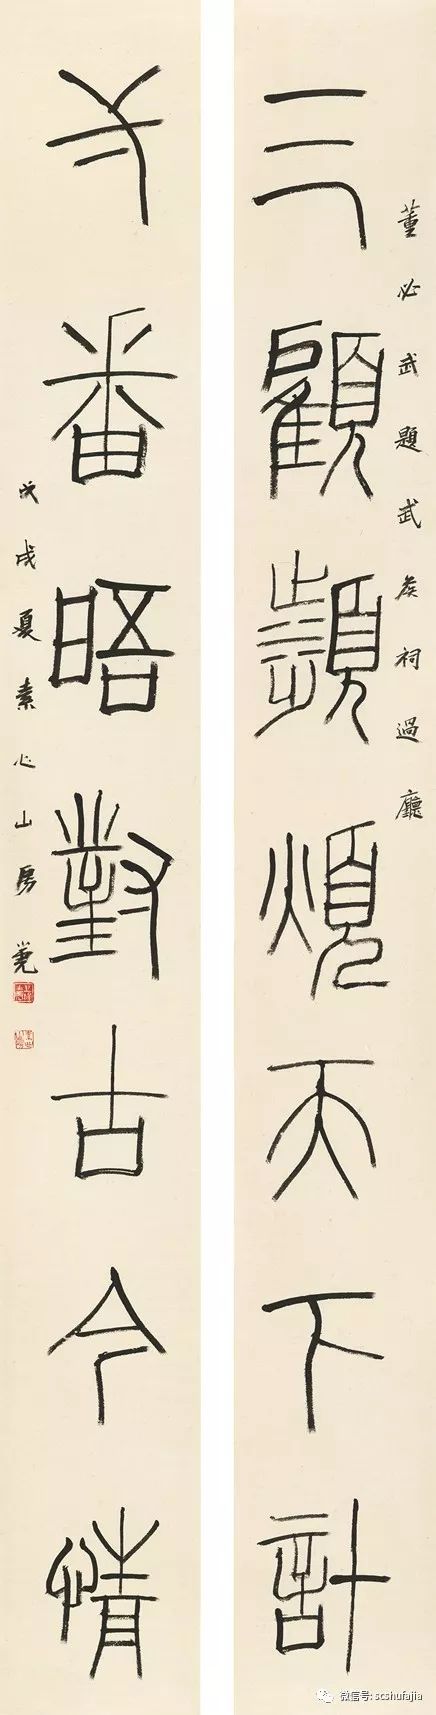 董必武題武侯祠過廳
三顧頻煩天下計
番晤對古今情
戊戌夏素心山房
微信号: scshufajia